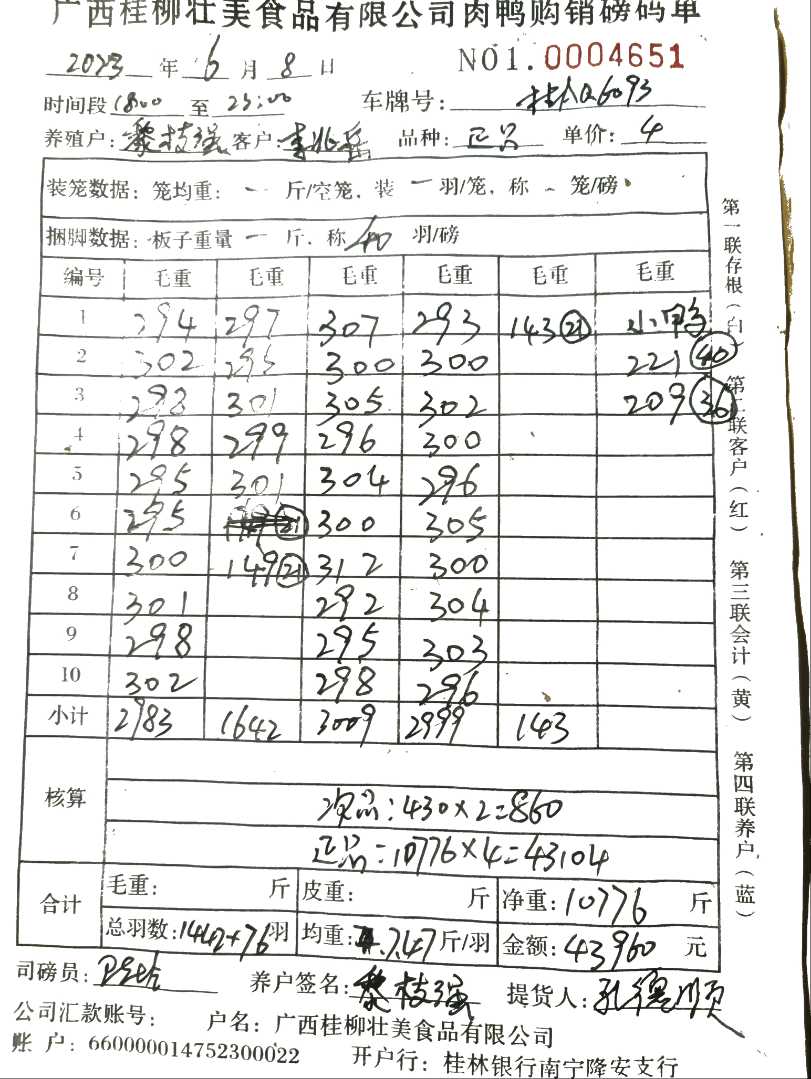 广西桂柳壮美食品有限公司肉鸭购销磅码单
2023 年 6 月 8 日 NO1.0004651
时间段 18:00 至 23:00 车牌号: 桂AQ6093
养殖户: 黎枝强 客户: 李兆岳 品种: 正品 单价: 4
装笼数据: 笼均重: 一 斤/空笼, 装 一 羽/笼, 称 - 笼/磅
捆脚数据: 板子重量 一 斤, 称 40 羽/磅
编号 毛重 毛重 毛重 毛重 毛重 毛重
1 294 297 307 293 143 (21) 小鸭
2 302 295 300 300 221 (40)
3 298 301 305 302 209 (36)
4 298 299 296 300
5 295 301 304 296
6 295 (21) 300 305
7 300 149 (21) 312 300
8 301 292 304
9 298 295 303
10 302 298 296
小计 2983 1642 3009 2999 143
核算
次品: 430×2=860
正品=10776×4=43104
合计 毛重: 斤 皮重: 斤 净重: 10776 斤
总羽数: 1442+76 羽 均重: 7.47 斤/羽 金额: 43960 元
司磅员: 养户签名: 黎枝强 提货人: 孔德顺
公司汇款账号: 户名: 广西桂柳壮美食品有限公司
账 户: 660000014752300022 开户行: 桂林银行南宁隆安支行
第一联存根(白) 第二联客户(红) 第三联会计(黄) 第四联养户(蓝)